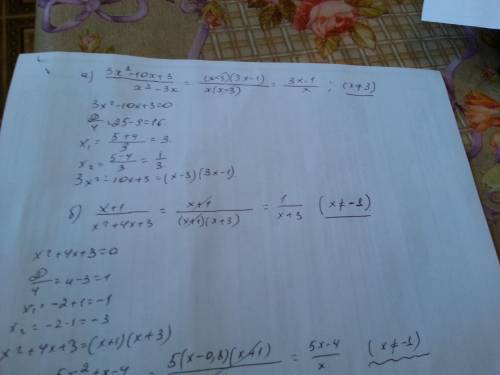 а) (3x²-10x+3)/(x²-3x) = ((x-3)(3x-1))/(x(x-3)) = (3x-1)/x ; (x≠3)
3x²-10x+3=0
D/4=25-9=16
x₁ = (5+4)/3 = 3
x₂ = (5-4)/3 = 1/3
3x²-10x+3=(x-3)(3x-1)
б) (x+1)/(x²+4x+3) = (x+1)/((x+1)(x+3)) = 1/(x+3) (x≠-1)
x²+4x+3=0
D/4=4-3=1
x₁=-2+1=-1
x₂=-2-1=-3
x²+4x+3=(x+1)(x+3)
5x²+x-4 = 5(x-0,8)(x+1) = (5x-4)/x (x≠-1)